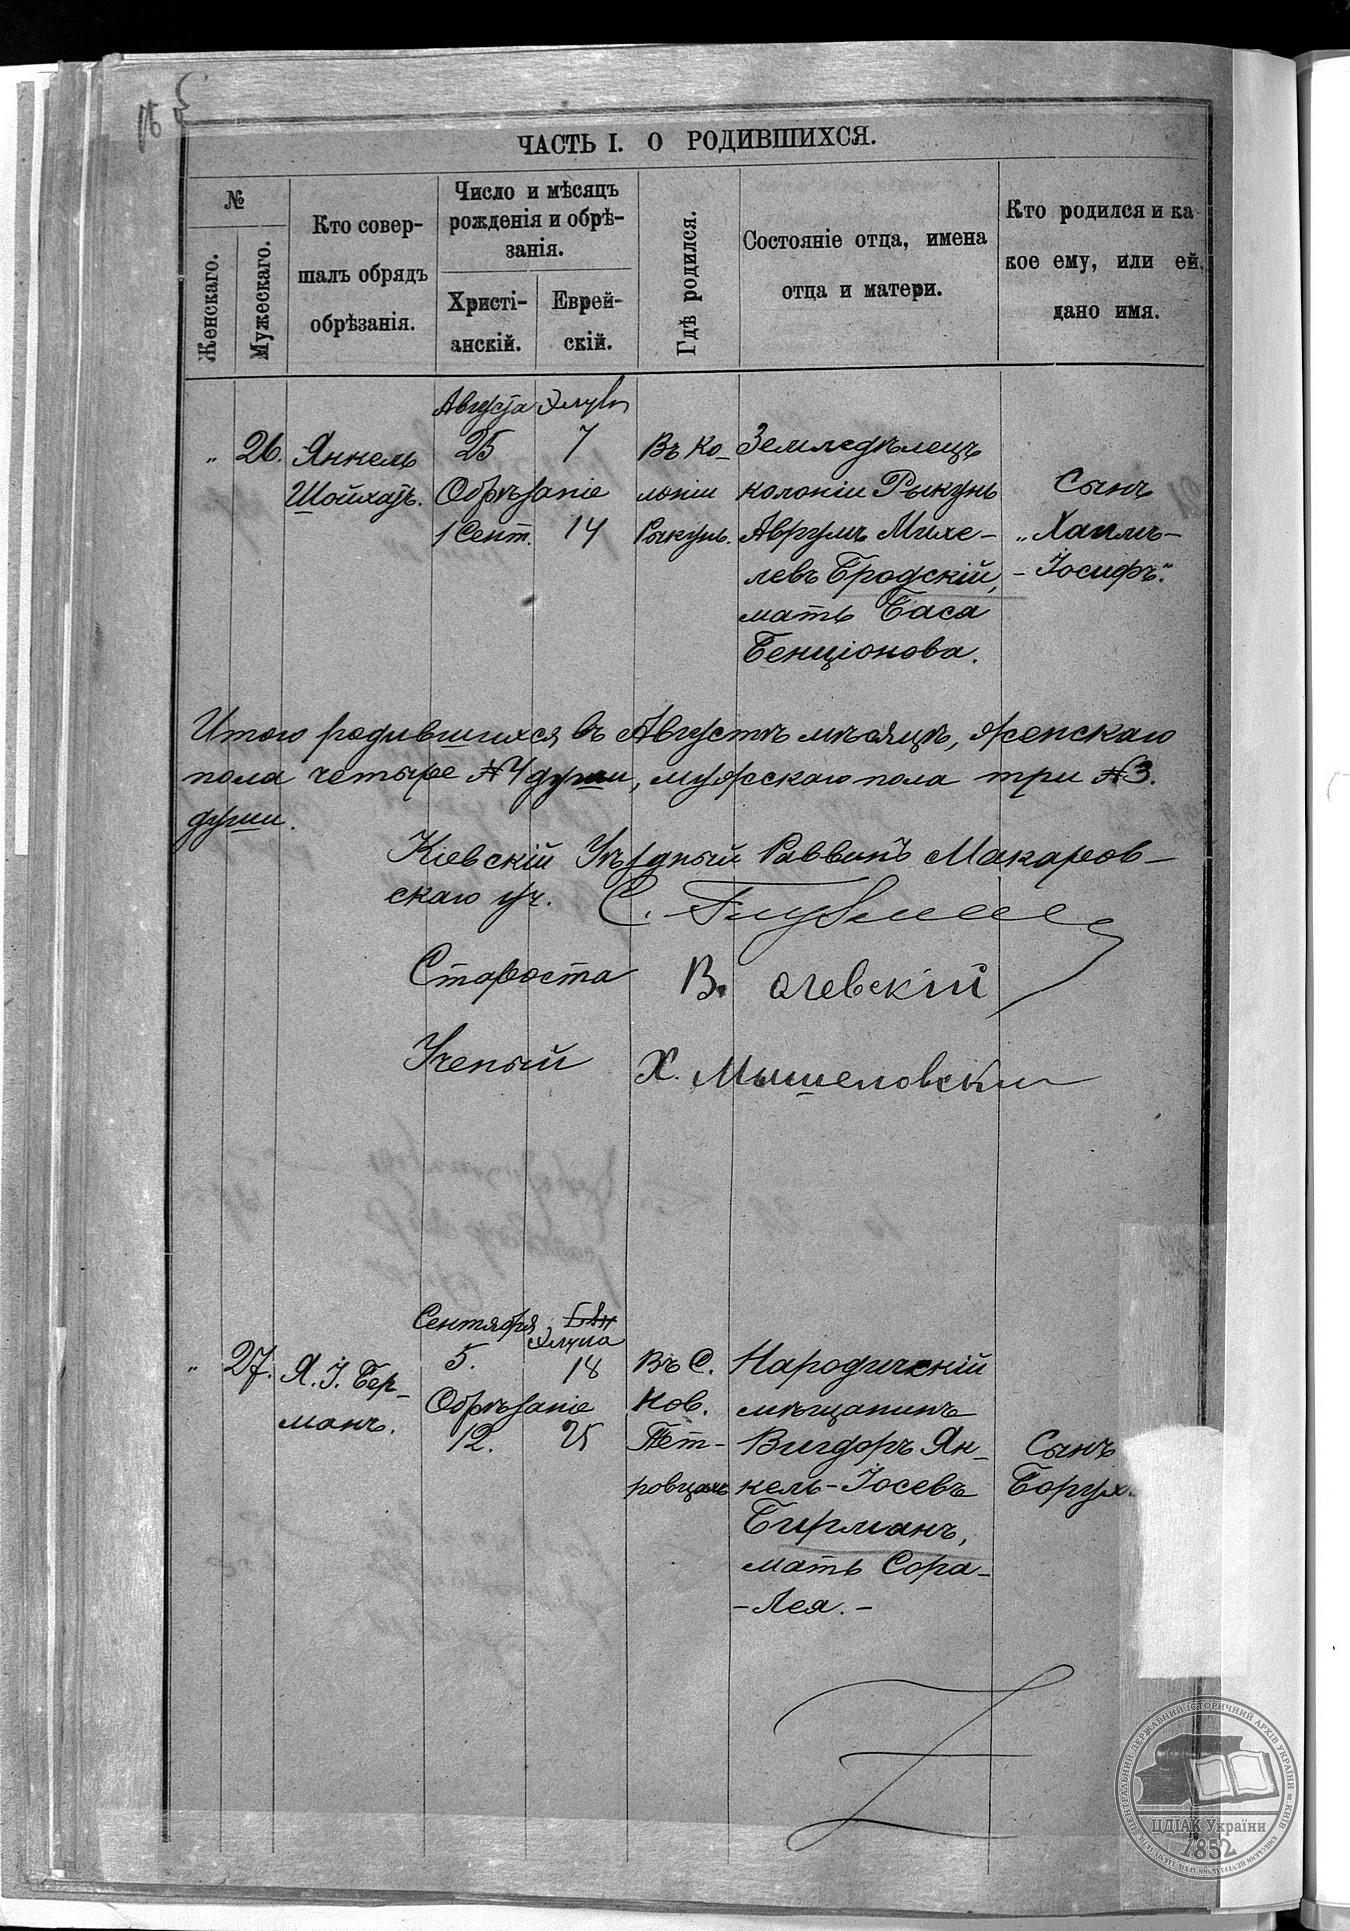 ЧАСТЬ I. О РОДИВШИХСЯ.
№
Женскаго.
Мужескаго.
Кто совер-
шалъ обрядъ
обрѣзанія.
Число и мѣсяцъ
рожденія и обрѣ-
занія.
Христі-
анскій.
Еврей-
скій.
Гдѣ родился.
Состояніе отца, имена
отца и матери.
Кто родился и ка
кое ему, или ей,
дано имя.
„ 26.
Янкель
Шойхатъ.
Августа
25
Обрѣзаніе
1 Сент.
Элула
7
14
Въ Ко-
лоніи
Рыкунь.
Земледѣлецъ
колоніи Рыкунь
Аврумъ Михе-
левъ Бродскій,
мать Бася
Бенціонова.
Сынъ
„Хаимъ-
-Іосифъ“.
Итого родившихся въ Августѣ мѣсяцѣ, женскаго
пола четыре №4 души, мужскаго пола три №3.
души.
Кіевскій Уѣздный Раввинъ Макаров-
скаго уч. С.
Староста В.
Ученый Х.
„ 27.
Я. І. Бер-
манъ.
Сентября
5.
Обрѣзаніе
12.
Элула
18
25
Въ С.
Нов.
Пет-
ровцахъ
Народичскій
мѣщанинъ
Вигдоръ Ян-
кель-Іосевъ
Бирманъ,
мать Сора-
-Лея.-
Сынъ
Борухъ
ЦЕНТРАЛЬНИЙ ДЕРЖАВНИЙ ІСТОРИЧНИЙ АРХІВ УКРАЇНИ М. КИЇВ
ЦДІАК України
1852